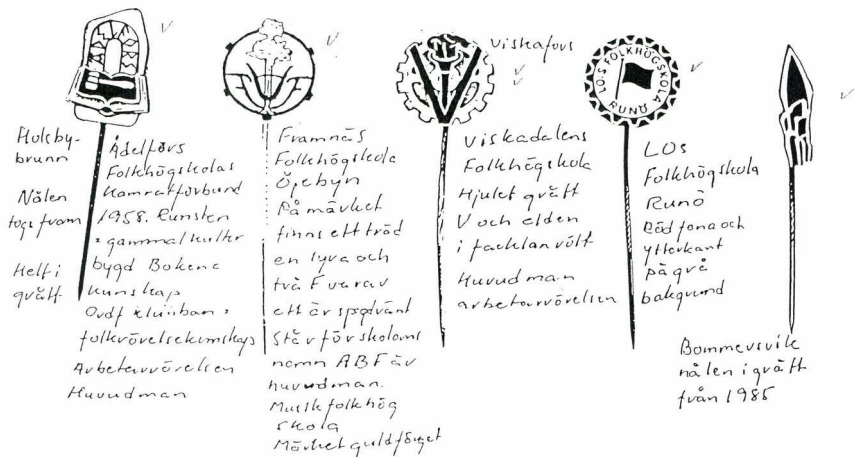 Holsby-
brunn
Nålen
togs fram
Helt i
grått
Ädelfors
Folkhögskolas
Kamratförbund
1958. Runsten
= gammal kultur
bygd Bokene
kunskap
Ordf klubban =
folkrörelsekunskap
Arbetarrörelsen
Huvudman
Framnäs
Folkhögskola
Öjebyn
På märket
finns ett träd
en lyra och
två F varav
ett är spegelvänt
Står för skolans
namn ABF är
huvudman.
Musikfolkhög
skola
Märket guldfärget
Viskafors
Viskadalens
Folkhögskola
Hjulet grått
V och elden
i facklan rött
Huvudman
arbetarrörelsen
LO:S FOLKHÖGSKOLA
RUNÖ
LOs
Folkhögskola
Runö
Röd fana och
ytterkant
på grå
bakgrund
Bommersvik
nålen i grått
från 1985